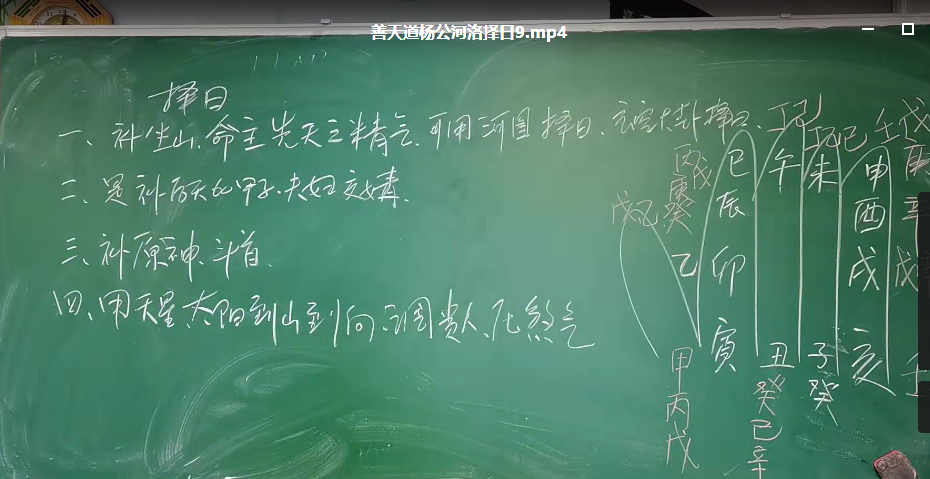 善天道杨公河洛择日9.mp4
择日
一、补坐山、命主先天之精气、可用河图择日、玄空大卦择日、
二、是补后天 甲子、夫妇交媾、
三、补原神、斗首、
四、用天星、太阳到山到向、 贵人、压煞气
丙戊 巳 午 丁己 未 丁己 申 壬戊 庚
庚癸 辰 酉 辛
戊己 乙 卯 戌 戊
寅 丑 子 亥 壬
甲 癸 癸
丙 己
戊 辛